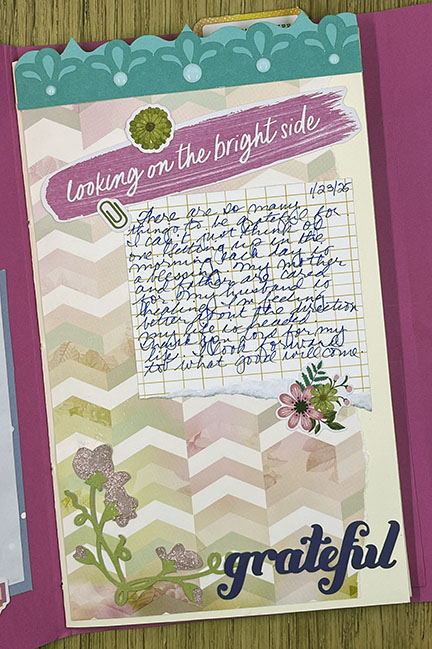 looking on the bright side
1/23/25
There are so many
things to be grateful for
I can't just think of
one. Getting up in the
morning each day is
a blessing. My mother
and father are cared
for. My husband is
healing. I'm feeling
better about the direction
my life is headed.
Thank you for my
life. I look forward
to what good will come.
grateful